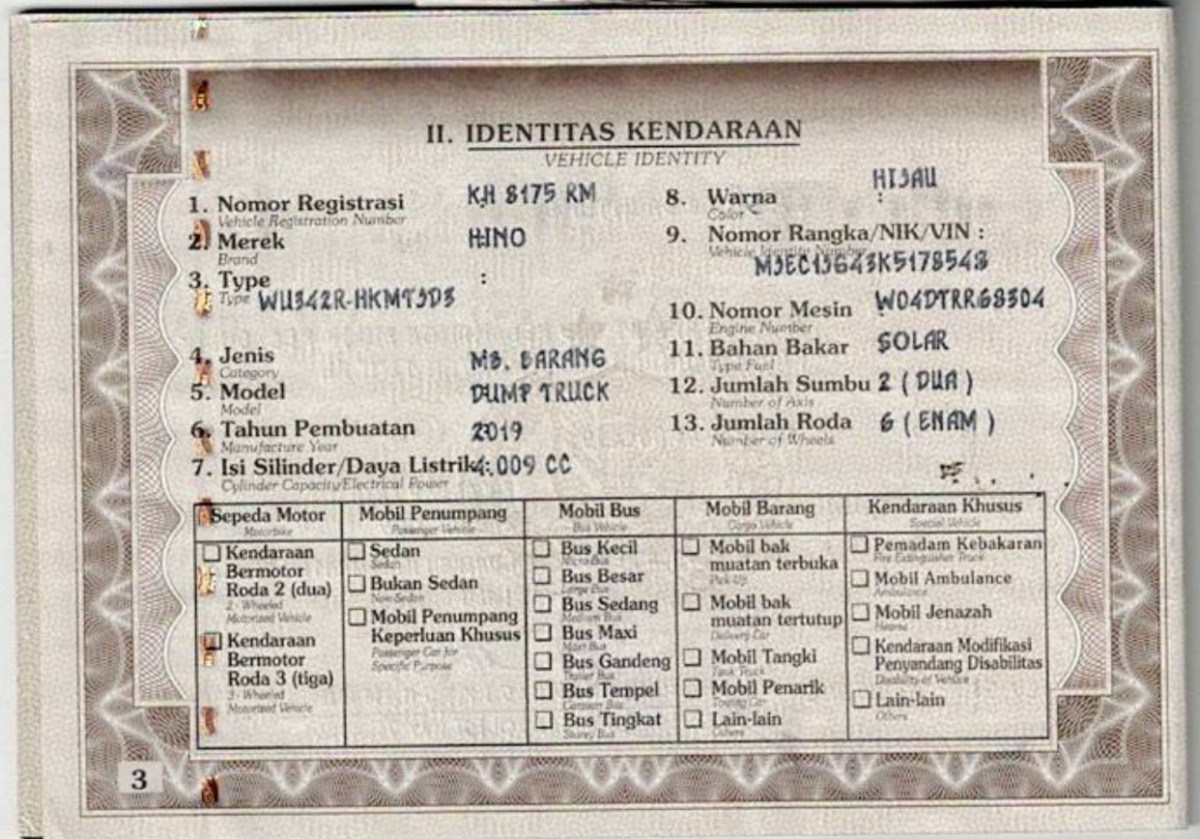 II. IDENTITAS KENDARAAN
VEHICLE IDENTITY
1. Nomor Registrasi KH 8175 RM
Vehicle Registration Number
2. Merek HINO
Brand
3. Type :
Type WU342R-HKMTJD3
4. Jenis MB. BARANG
Category
5. Model DUMP TRUCK
Model
6. Tahun Pembuatan 2019
Manufacture Year
7. Isi Silinder/Daya Listrik : 4.009 CC
Cylinder Capacity/Electrical Power
8. Warna : HIJAU
Color
9. Nomor Rangka/NIK/VIN :
Vehicle Identity Number
MJEC1JG43K5178548
10. Nomor Mesin W04DTRR68304
Engine Number
11. Bahan Bakar SOLAR
Type Fuel
12. Jumlah Sumbu 2 ( DUA )
Number of Axis
13. Jumlah Roda 6 ( ENAM )
Number of Wheels
Sepeda Motor
Motorbike
Kendaraan
Bermotor
Roda 2 (dua)
2 - Wheeled
Motorized Vehicle
Kendaraan
Bermotor
Roda 3 (tiga)
3 - Wheeled
Motorized Vehicle
Mobil Penumpang
Passenger Vehicle
Sedan
Sedan
Bukan Sedan
Non-Sedan
Mobil Penumpang
Keperluan Khusus
Passenger Car for
Specific Purpose
Mobil Bus
Bus Vehicle
Bus Kecil
Micro Bus
Bus Besar
Large Bus
Bus Sedang
Medium Bus
Bus Maxi
Maxi Bus
Bus Gandeng
Trailer Bus
Bus Tempel
Caravan Bus
Bus Tingkat
Storey Bus
Mobil Barang
Cargo Vehicle
Mobil bak
muatan terbuka
Pick-Up
Mobil bak
muatan tertutup
Delivery Car
Mobil Tangki
Tank Truck
Mobil Penarik
Towing Car
Lain-lain
Others
Kendaraan Khusus
Special Vehicle
Pemadam Kebakaran
Fire Extinguisher Truck
Mobil Ambulance
Ambulance
Mobil Jenazah
Hearse
Kendaraan Modifikasi
Penyandang Disabilitas
Disability of Vehicle
Lain-lain
Others
3